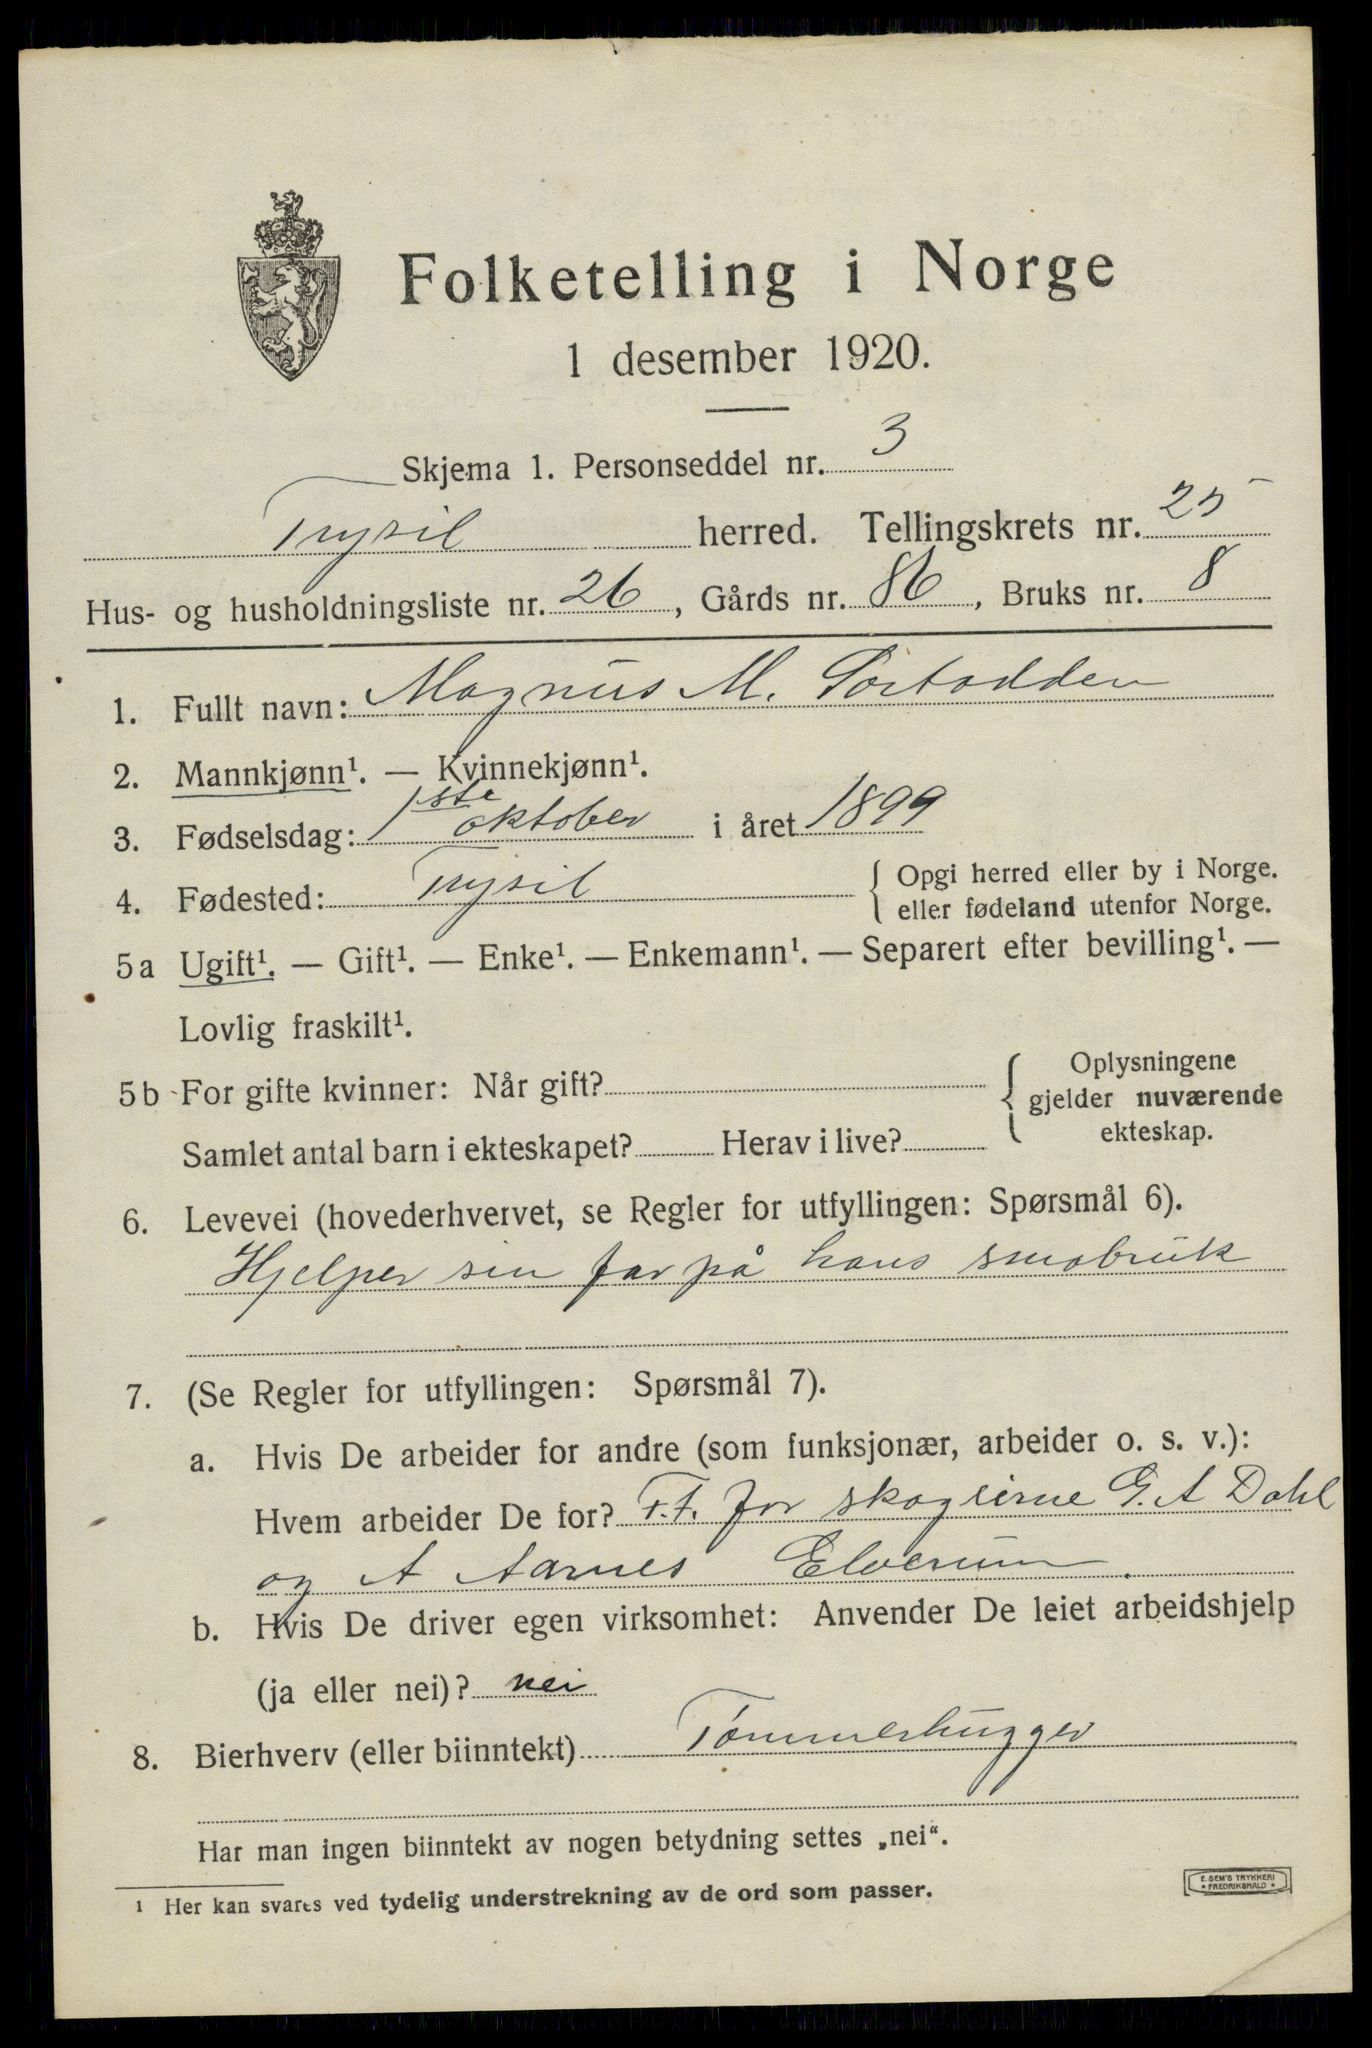 Folketelling i Norge
1 desember 1920.
Skjema 1. Personseddel nr. 3
Trysil herred. Tellingskrets nr. 25
Hus- og husholdningsliste nr. 26, Gårds nr. 86, Bruks nr. 8
1. Fullt navn: Magnus M. Portodden
2. Mannkjønn¹. — Kvinnekjønn¹.
3. Fødselsdag: 1ste oktober i året 1899
4. Fødested: Trysil { Opgi herred eller by i Norge.
eller fødeland utenfor Norge.
5a Ugift¹. — Gift¹. — Enke¹. — Enkemann¹. — Separert efter bevilling¹. —
Lovlig fraskilt¹.
5b For gifte kvinner: Når gift? { Oplysningene
gjelder nuværende
ekteskap.
Samlet antal barn i ekteskapet? Herav i live?
6. Levevei (hovederhvervet, se Regler for utfyllingen: Spørsmål 6).
Hjelper sin far på hans småbruk
7. (Se Regler for utfyllingen: Spørsmål 7).
a. Hvis De arbeider for andre (som funksjonær, arbeider o. s. v.):
Hvem arbeider De for? F.t. for skogeierne G. A Dahl
og A Aarnes Elverum.
b. Hvis De driver egen virksomhet: Anvender De leiet arbeidshjelp
(ja eller nei)? nei
8. Bierhverv (eller biinntekt) Tømmerhugger
Har man ingen biinntekt av nogen betydning settes „nei“.
¹ Her kan svares ved tydelig understrekning av de ord som passer.
E. SEM'S TRYKKERI
• FREDRIKSHALD •